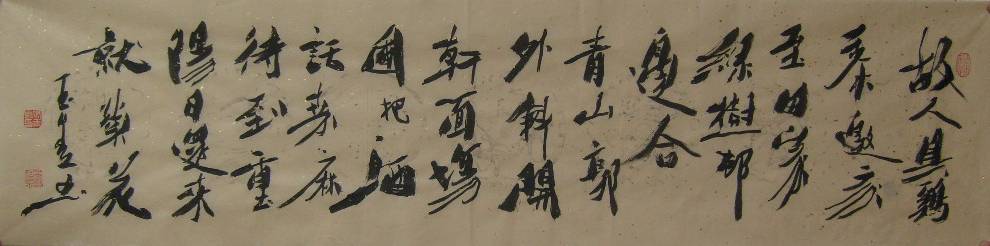 故人具鷄
黍邀我
至田家
綠樹邨
邊合
青山郭
外斜開
軒面場
圃把酒
話桑麻
待到重
陽日還来
就菊花
书